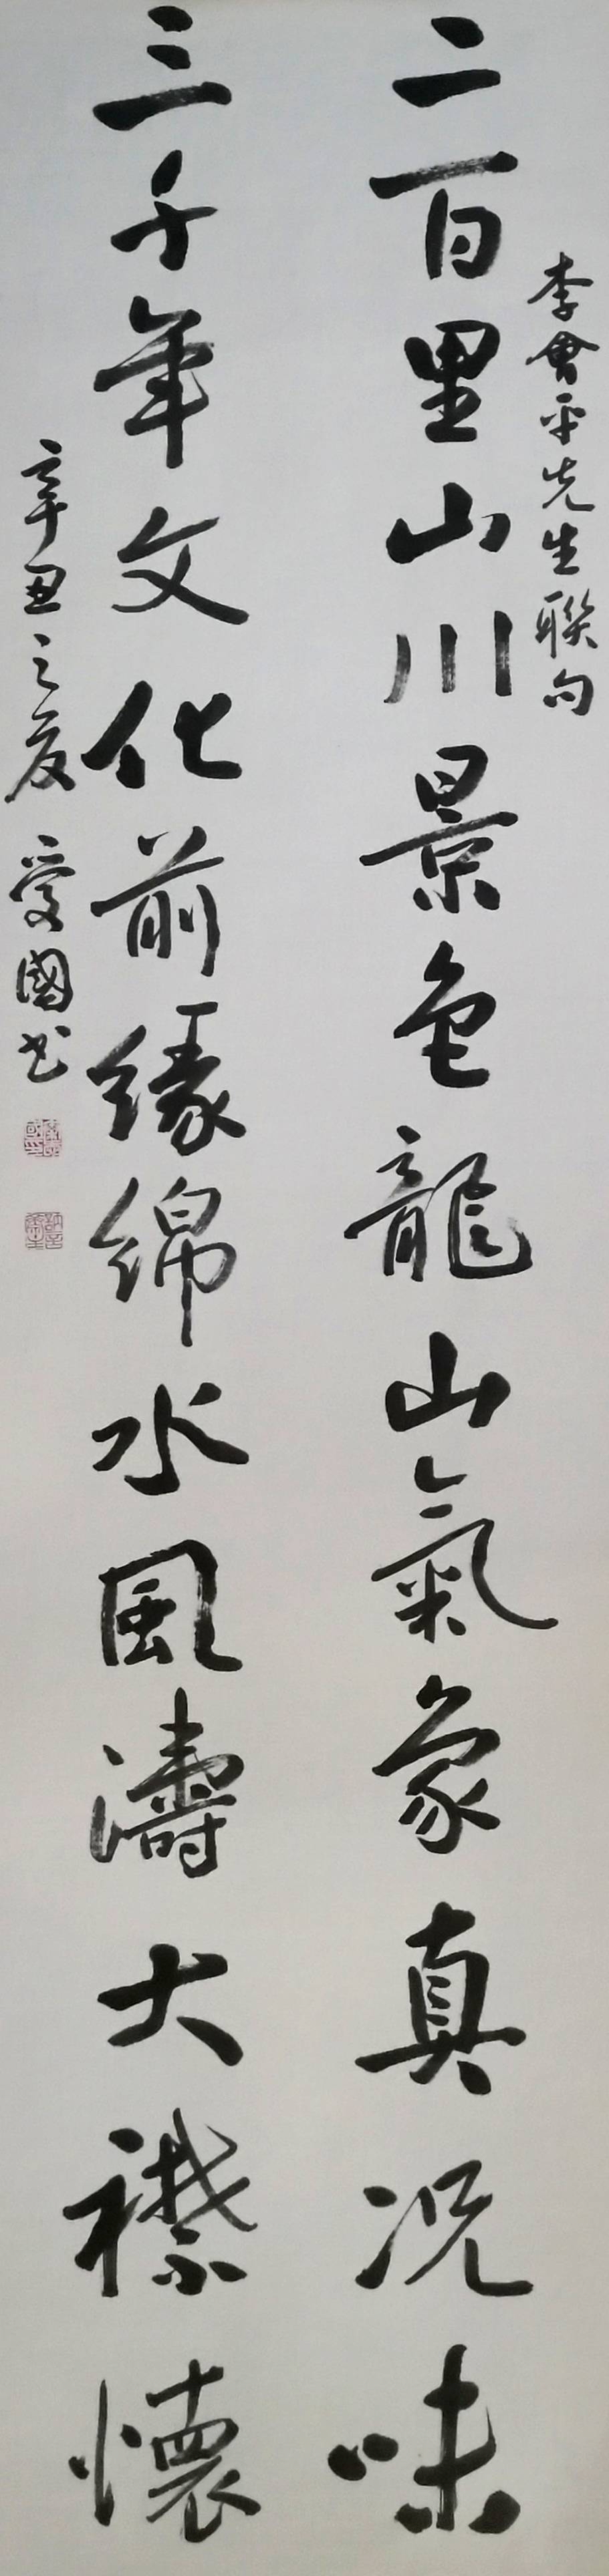 李會平先生聯句
二百里山川景色龍山氣象真况味
三千年文化前緣綿水風濤大襟懷
辛丑之夏 愛國书